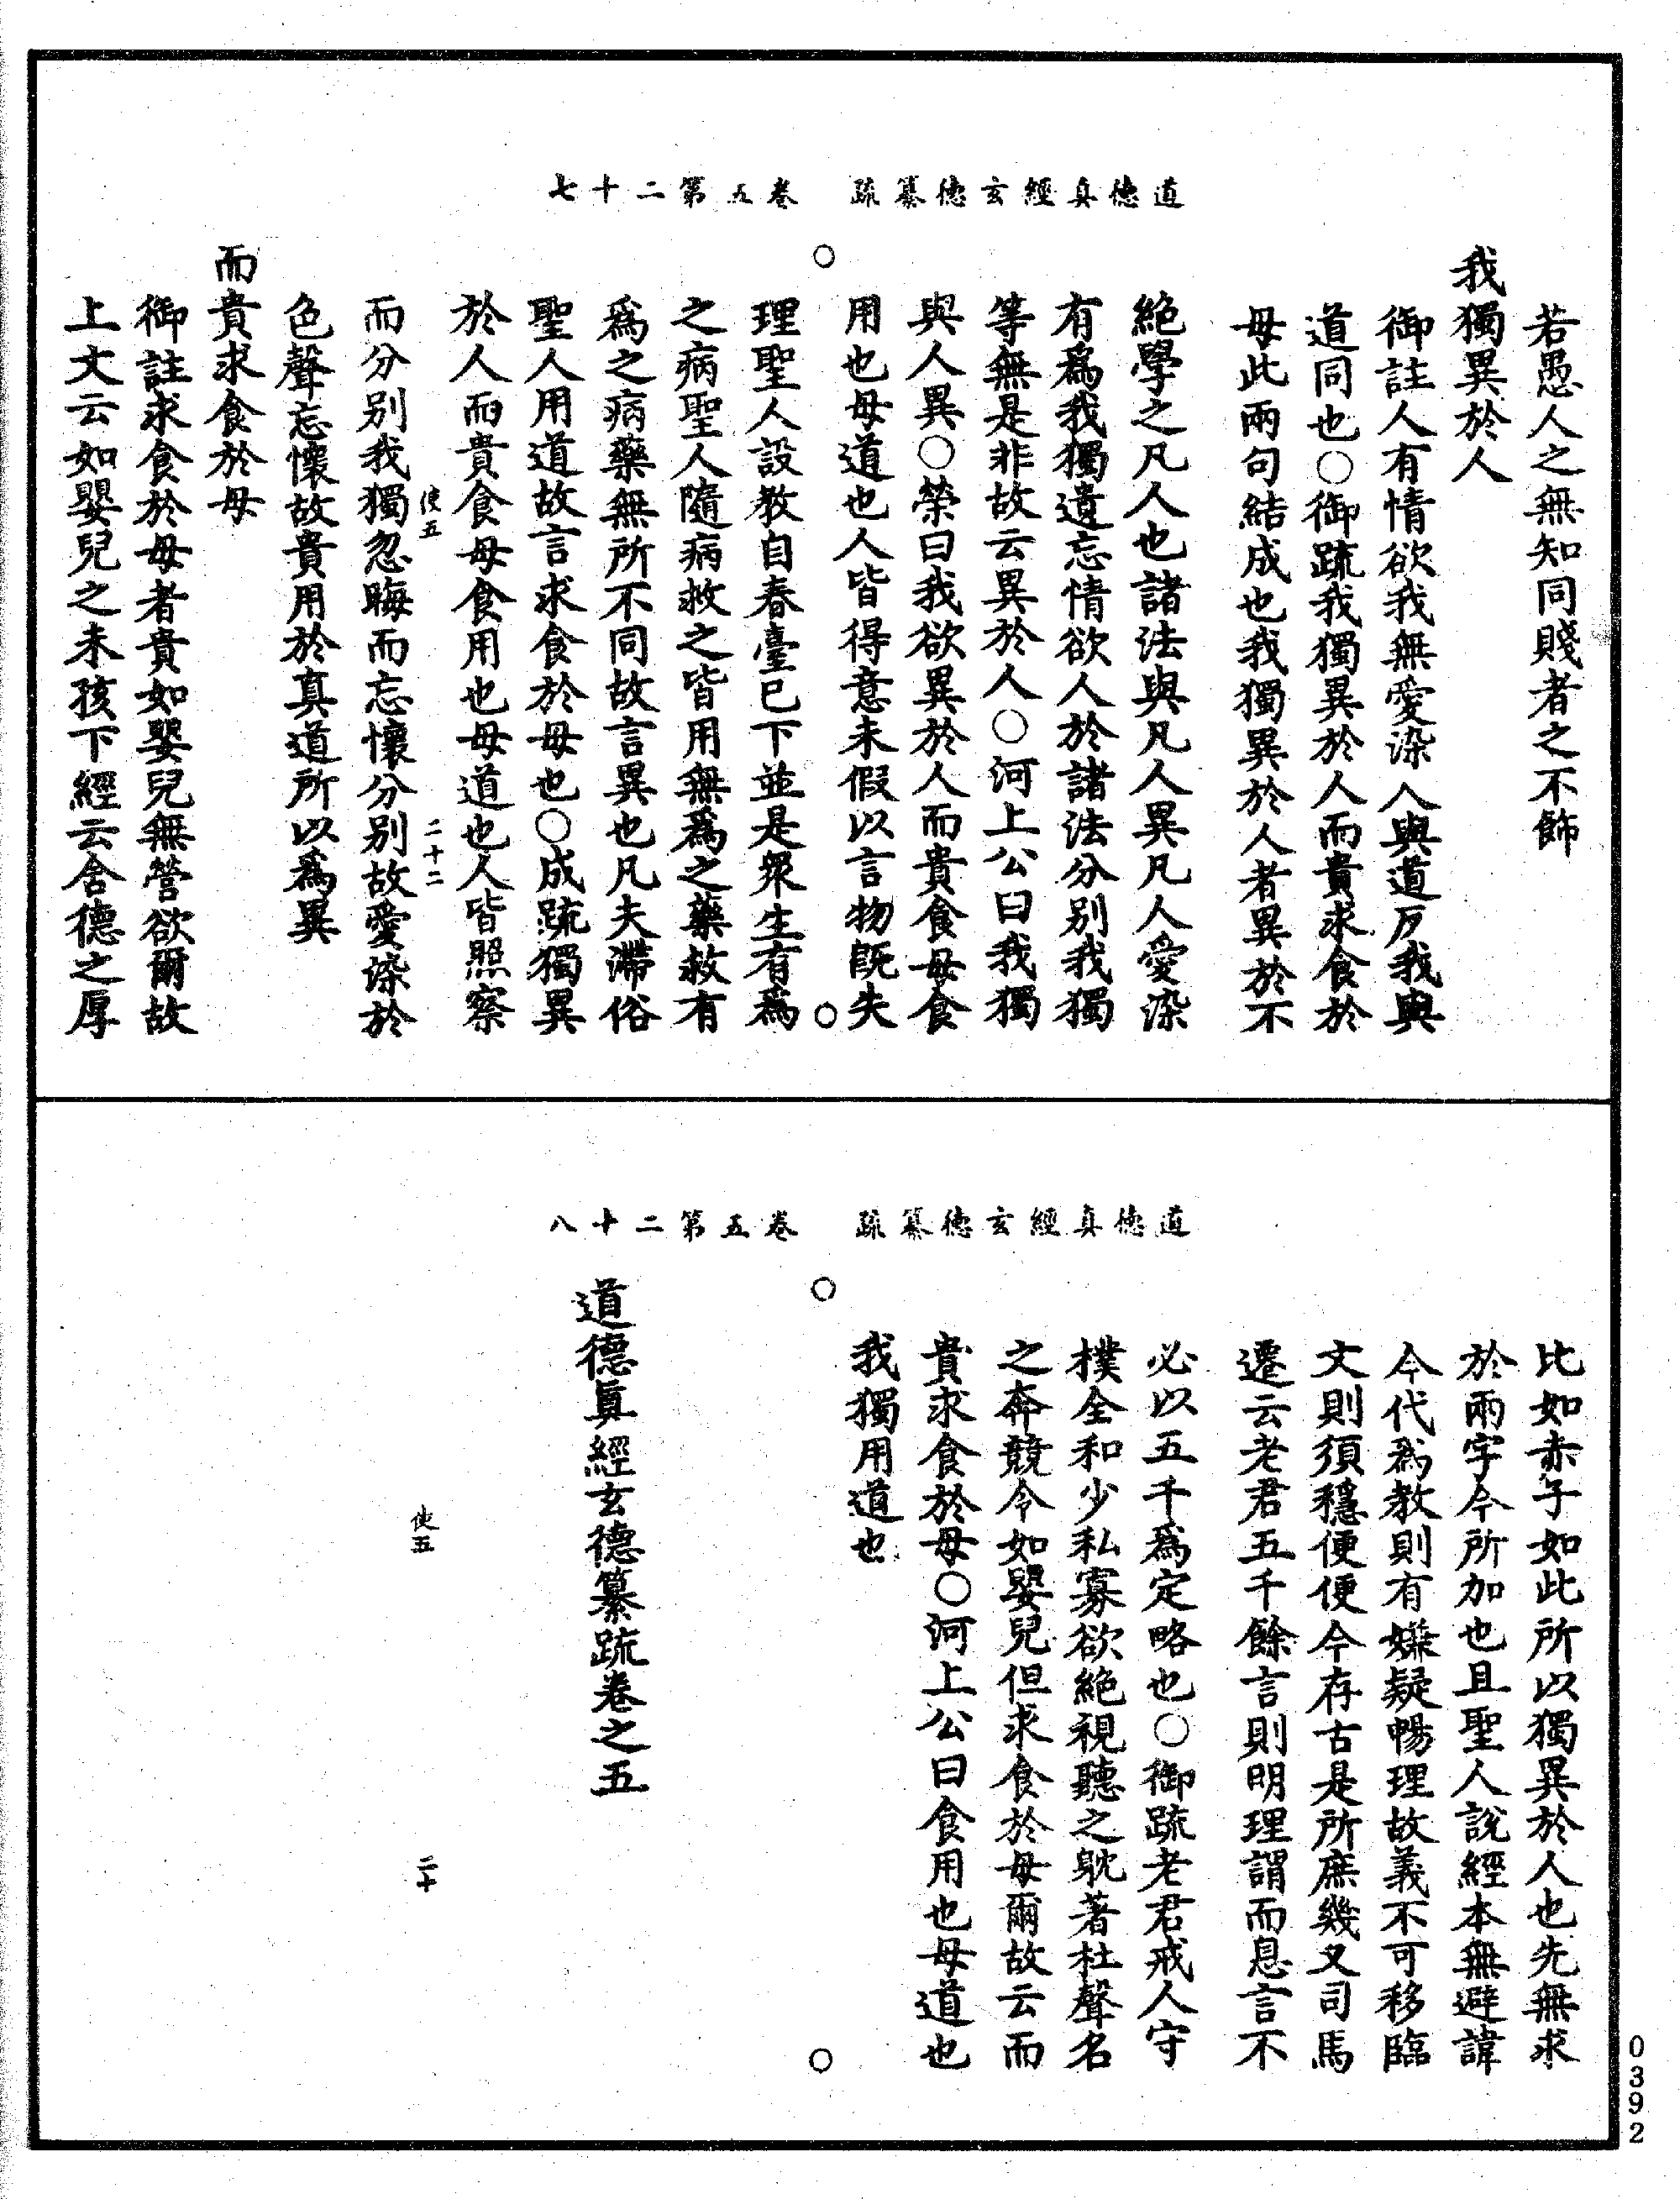 道德真經玄德纂疏　卷五第二十七
若愚人之無知同賤者之不飾
我獨異於人
御註人有情欲我無愛染人與道反我與
道同也○御疏我獨異於人而貴求食於
母此兩句結成也我獨異於人者異於不
絕學之凡人也諸法與凡人異凡人愛染
有爲我獨遺忘情欲人於諸法分別我獨
等無是非故云異於人○河上公曰我獨
與人異○榮曰我欲異於人而貴食母食
用也母道也人皆得意未假以言物既失
理聖人設教自春臺已下並是衆生有爲
之病聖人隨病救之皆用無爲之藥救有
爲之病藥無所不同故言異也凡夫滯俗
聖人用道故言求食於母也○成疏獨異
於人而貴食母食用也母道也人皆照察
使五　二十二
而分別我獨忽晦而忘懷分別故愛染於
色聲忘懷故貴用於真道所以爲異
而貴求食於母
御註求食於母者貴如嬰兒無營欲爾故
上文云如嬰兒之未孩下經云含德之厚
道德真經玄德纂疏　卷五第二十八
比如赤子如此所以獨異於人也先無求
於兩字今所加也且聖人說經本無避諱
今代爲教則有嫌疑暢理故義不可移臨
文則須穩便便今存古是所庶幾又司馬
遷云老君五千餘言則明理謂而息言不
必以五千爲定略也○御疏老君戒人守
樸全和少私寡欲絕視聽之躭著杜聲名
之奔競令如嬰兒但求食於母爾故云而
貴求食於母○河上公曰食用也母道也
我獨用道也
道德真經玄德纂疏卷之五
使五　二十
0392